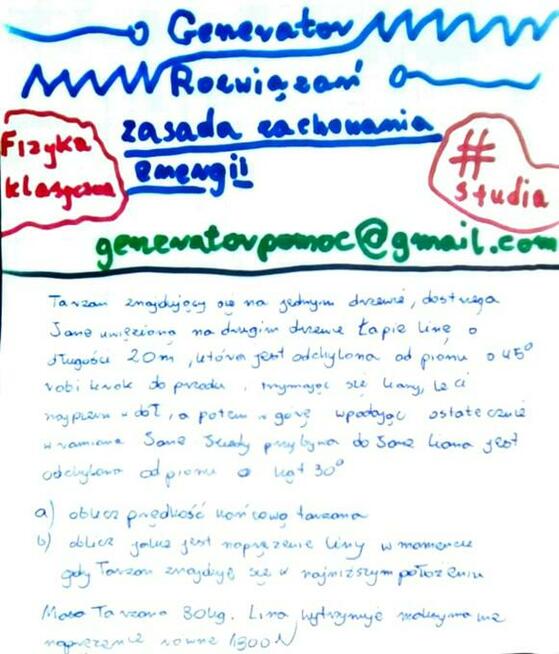 Generator
Rozwiązań
zasada zachowania
energii
Fizyka
klasyczna
#
studia
generatorpomoc@gmail.com
Tarzan znajdujący się na jednym drzewie, dostrzega
Jane uwięzioną na drugim drzewie Łapie linę o
długości 20m, która jest odchylona od pionu o 45°
robi krok do przodu, trzymając się liany, leci
najpierw w dół, a potem w górę wpadając ostatecznie
w ramiona Jane przybywa do Jane liana jest
odchylona od pionu o kąt 30°
a) oblicz prędkość końcową tarzana
b) oblicz jakie jest naprężenie liny w momencie
gdy Tarzan znajduje się w najniższym położeniu
Masa Tarzana 80kg. Lina wytrzymuje maksymalne
naprężenie równe 1300N